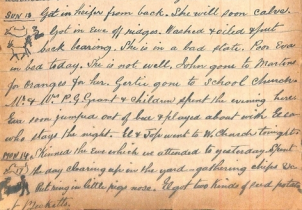 SUN 13 Got in heifer from back. She will soon calve.
Got in Ewe off ridges. Washed & oiled & put
back bearing. She is in a bad state. Poor Eva
in bed today. She is not well. John gone to Martins
for oranges for her. Gertie gone to School Church
Mr. & Mrs. P.G. Grant & Children spent the evening here
Eva soon jumped out of bed & played about with
who stays the night. & Top went to W. Church tonight
MON 14 Skinned the Ewe which we attended to yesterday. Spent
the day clearing up in the yard - gathering chips &c.
Put ring in little pigs nose. I got two kinds of seed potatoes